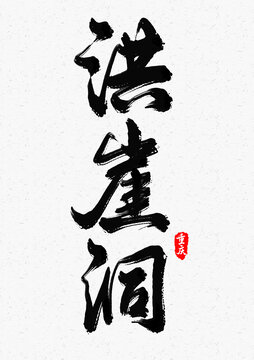 洪崖洞
重庆